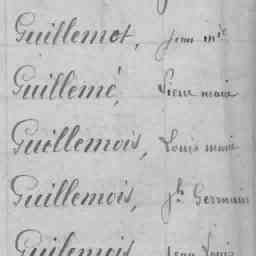 Guillemot, Jean m^ie
Guillemé, Pierre marie
Guillemois, Louis marie
Guillemois, J^h Germain
Guilemois Jean Louis